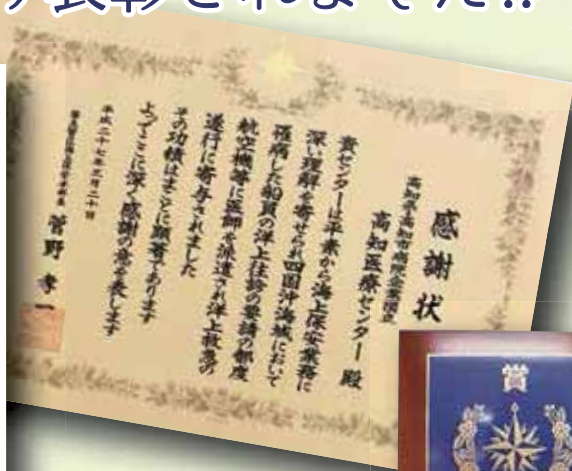 表彰されました!!
感謝状
高知県・高知市病院企業団立
高知医療センター 殿
貴センターは平素から海上保安業務に
深い理解を寄せられ四国沖海域において
罹病した船員の洋上往診の要請の都度
航空機等に医師を派遣され洋上救急の
遂行に寄与されました
その功績はまことに顕著であります
よってここに深く感謝の意を表します
平成二十七年三月二十日
菅野 孝一
賞